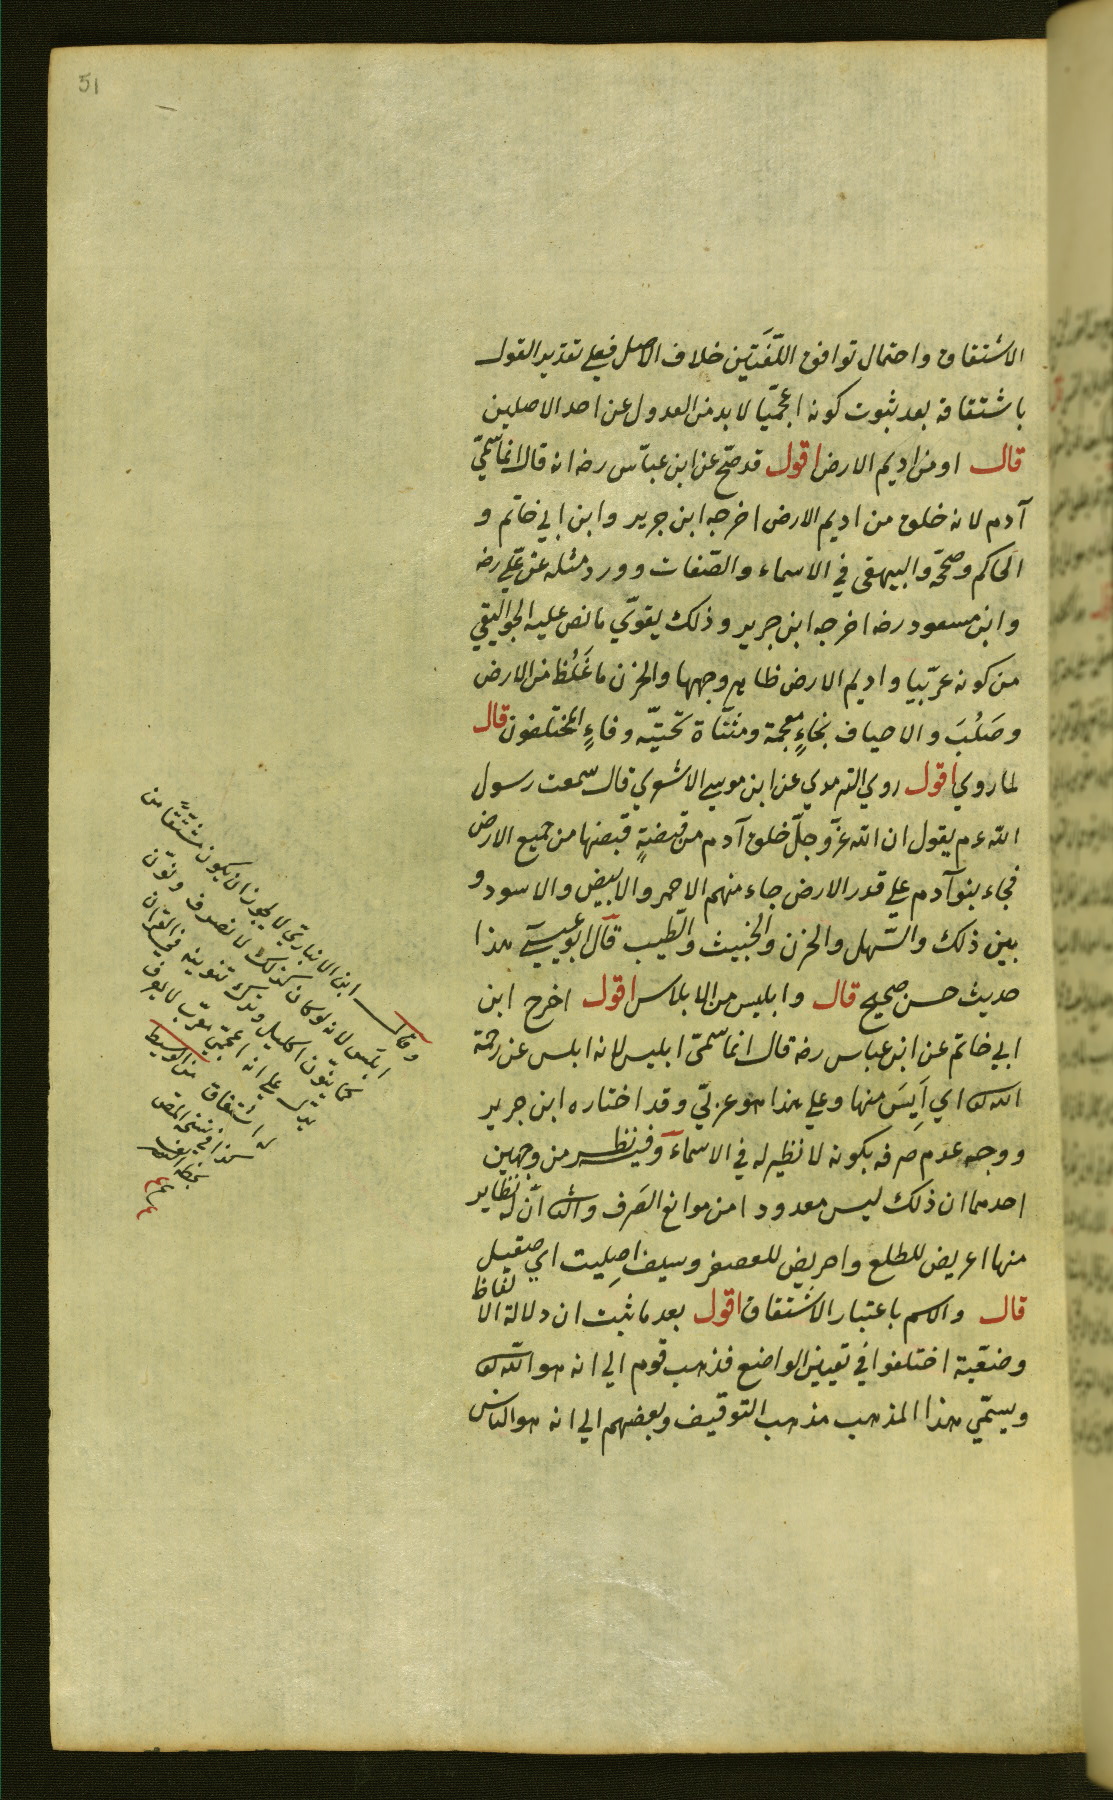 51
الاشتقاق واحتمال توافق اللّغَتين خلاف الاصل فعلى تقدير القول
باشتقاقه بعد ثبوت كونه اعجميّا لا بد من العدول عن احد الاصلين
قال او من اديم الارض اقول قد صحّ عن ابن عبّاس رضه انه قال انما سمّي
آدم لانه خلق من اديم الارض اخرجه ابن جرير وابن ابي خاتم و
الحاكم وصحّحه والبيهقي في الاسماء والصّفات وورد مثله عن علي رضه
وابن مسعود رضه اخرجه ابن جرير وذلك يقوّي ما نص عليه الجواليقي
من كونه عربّيا واديم الارض ظاهر وجهها والحزن ما غَلُظ من الارض
وصَلُبَ والاخياف بخاءٍ معجمة ومثنّاة تحتيّه وفاءٍ المختلفون قال
لما روي اقول روي الترمدي عن ابن موسى الاشعري قال سمعت رسول
الله ءم يقول ان الله عزّ وجلّ خلق آدم من قبضةٍ قبضها من جميع الارض
فجاء بنو آدم على قدر الارض جاء منهم الاحمر والابيض والاسود و
بين ذلك والسّهل والحزن والخبيث والطّيب قال ابو عيسى هذا
حديث حسن صحيح قال وابليس من الابلاس اقول اخرج ابن
ابي خاتم عن ابن عباس رضه قال انما سمّي ابليس لانه ابلس عن رحمة
الله اي اَيِسَ منها وعلى هذا هو عربيّ وقد اختاره ابن جرير
ووجه عدم صرفه بكونه لا نظير له في الاسماء وفيه نظر من وجهين
احدهما ان ذلك ليس معدودا من موانع الصّرف والثا انّ له نظاير
منها اعريض للطلع واحريض للعصفر وسيف اصليت اي صقيل
قال والاسم باعتبار الاشتقاق اقول بعد ما ثبت ان دلالة الالفاظ
وضعيّة اختلفوا في تعيين الواضع فذهب قوم الى انه هو الله
ويسمّي هذا المذهب مذهب التوقيف وبعضهم الى انه هو الناس
وقال ابن الانباريّ لا يجوز ان يكون مشتقّا من
ابلس لانه لو كان كذلك لانصرف ونوّن
كما ينوّن اكليل وترك تنوينه في القرآن
يدل على انه اعجميّ معرّب لا يعرف
له اشتقاق من الوسيط
كذا في نسخة المص